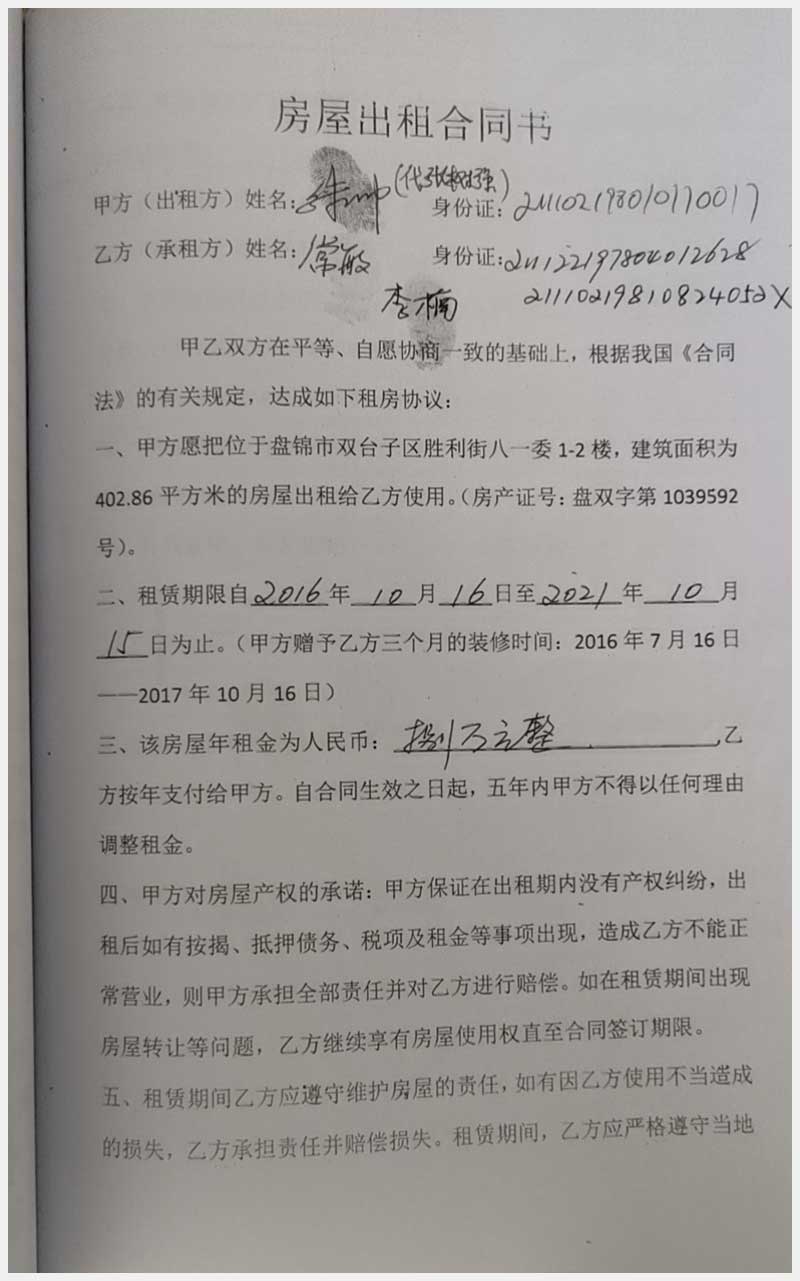 房屋出租合同书
甲方（出租方）姓名：朱帅（代张 强） 身份证：211021198010170017
乙方（承租方）姓名：常敏 身份证：211221197804012628
李楠 21110219810824052X
甲乙双方在平等、自愿协商一致的基础上，根据我国《合同
法》的有关规定，达成如下租房协议：
一、甲方愿把位于盘锦市双台子区胜利街八一委 1-2 楼，建筑面积为
402.86 平方米的房屋出租给乙方使用。（房产证号：盘双字第 1039592
号）。
二、租赁期限自 2016 年 10 月 16 日至 2021 年 10 月
15 日为止。（甲方赠予乙方三个月的装修时间：2016 年 7 月 16 日
——2017 年 10 月 16 日）
三、该房屋年租金为人民币： 捌万元整 ，乙
方按年支付给甲方。自合同生效之日起，五年内甲方不得以任何理由
调整租金。
四、甲方对房屋产权的承诺：甲方保证在出租期内没有产权纠纷，出
租后如有按揭、抵押债务、税项及租金等事项出现，造成乙方不能正
常营业，则甲方承担全部责任并对乙方进行赔偿。如在租赁期间出现
房屋转让等问题，乙方继续享有房屋使用权直至合同签订期限。
五、租赁期间乙方应遵守维护房屋的责任，如有因乙方使用不当造成
的损失，乙方承担责任并赔偿损失。租赁期间，乙方应严格遵守当地